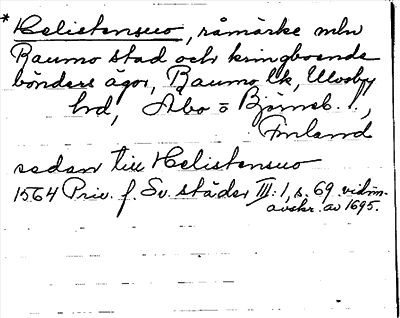 * Helistensuo, råmärke mln
Raumo stad och kringboende
bönders ägor, Raumo lk, Ulvsby
hd, Åbo o Björneb. l.,
Finland
sedan till Helistensuo
1564 Priv. f. Sv. städer III:1, s. 69. vidim.
avskr. av 1695.